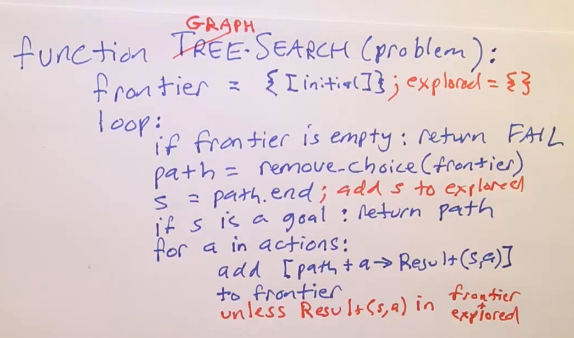 GRAPH
function TREE-SEARCH (problem):
frontier = {[initial]}; explored = {}
loop:
if frontier is empty: return FAIL
path = remove-choice(frontier)
s = path.end; add s to explored
if s is a goal: return path
for a in actions:
add [path + a → Result(s,a)]
to frontier
unless Result(s,a) in frontier + explored